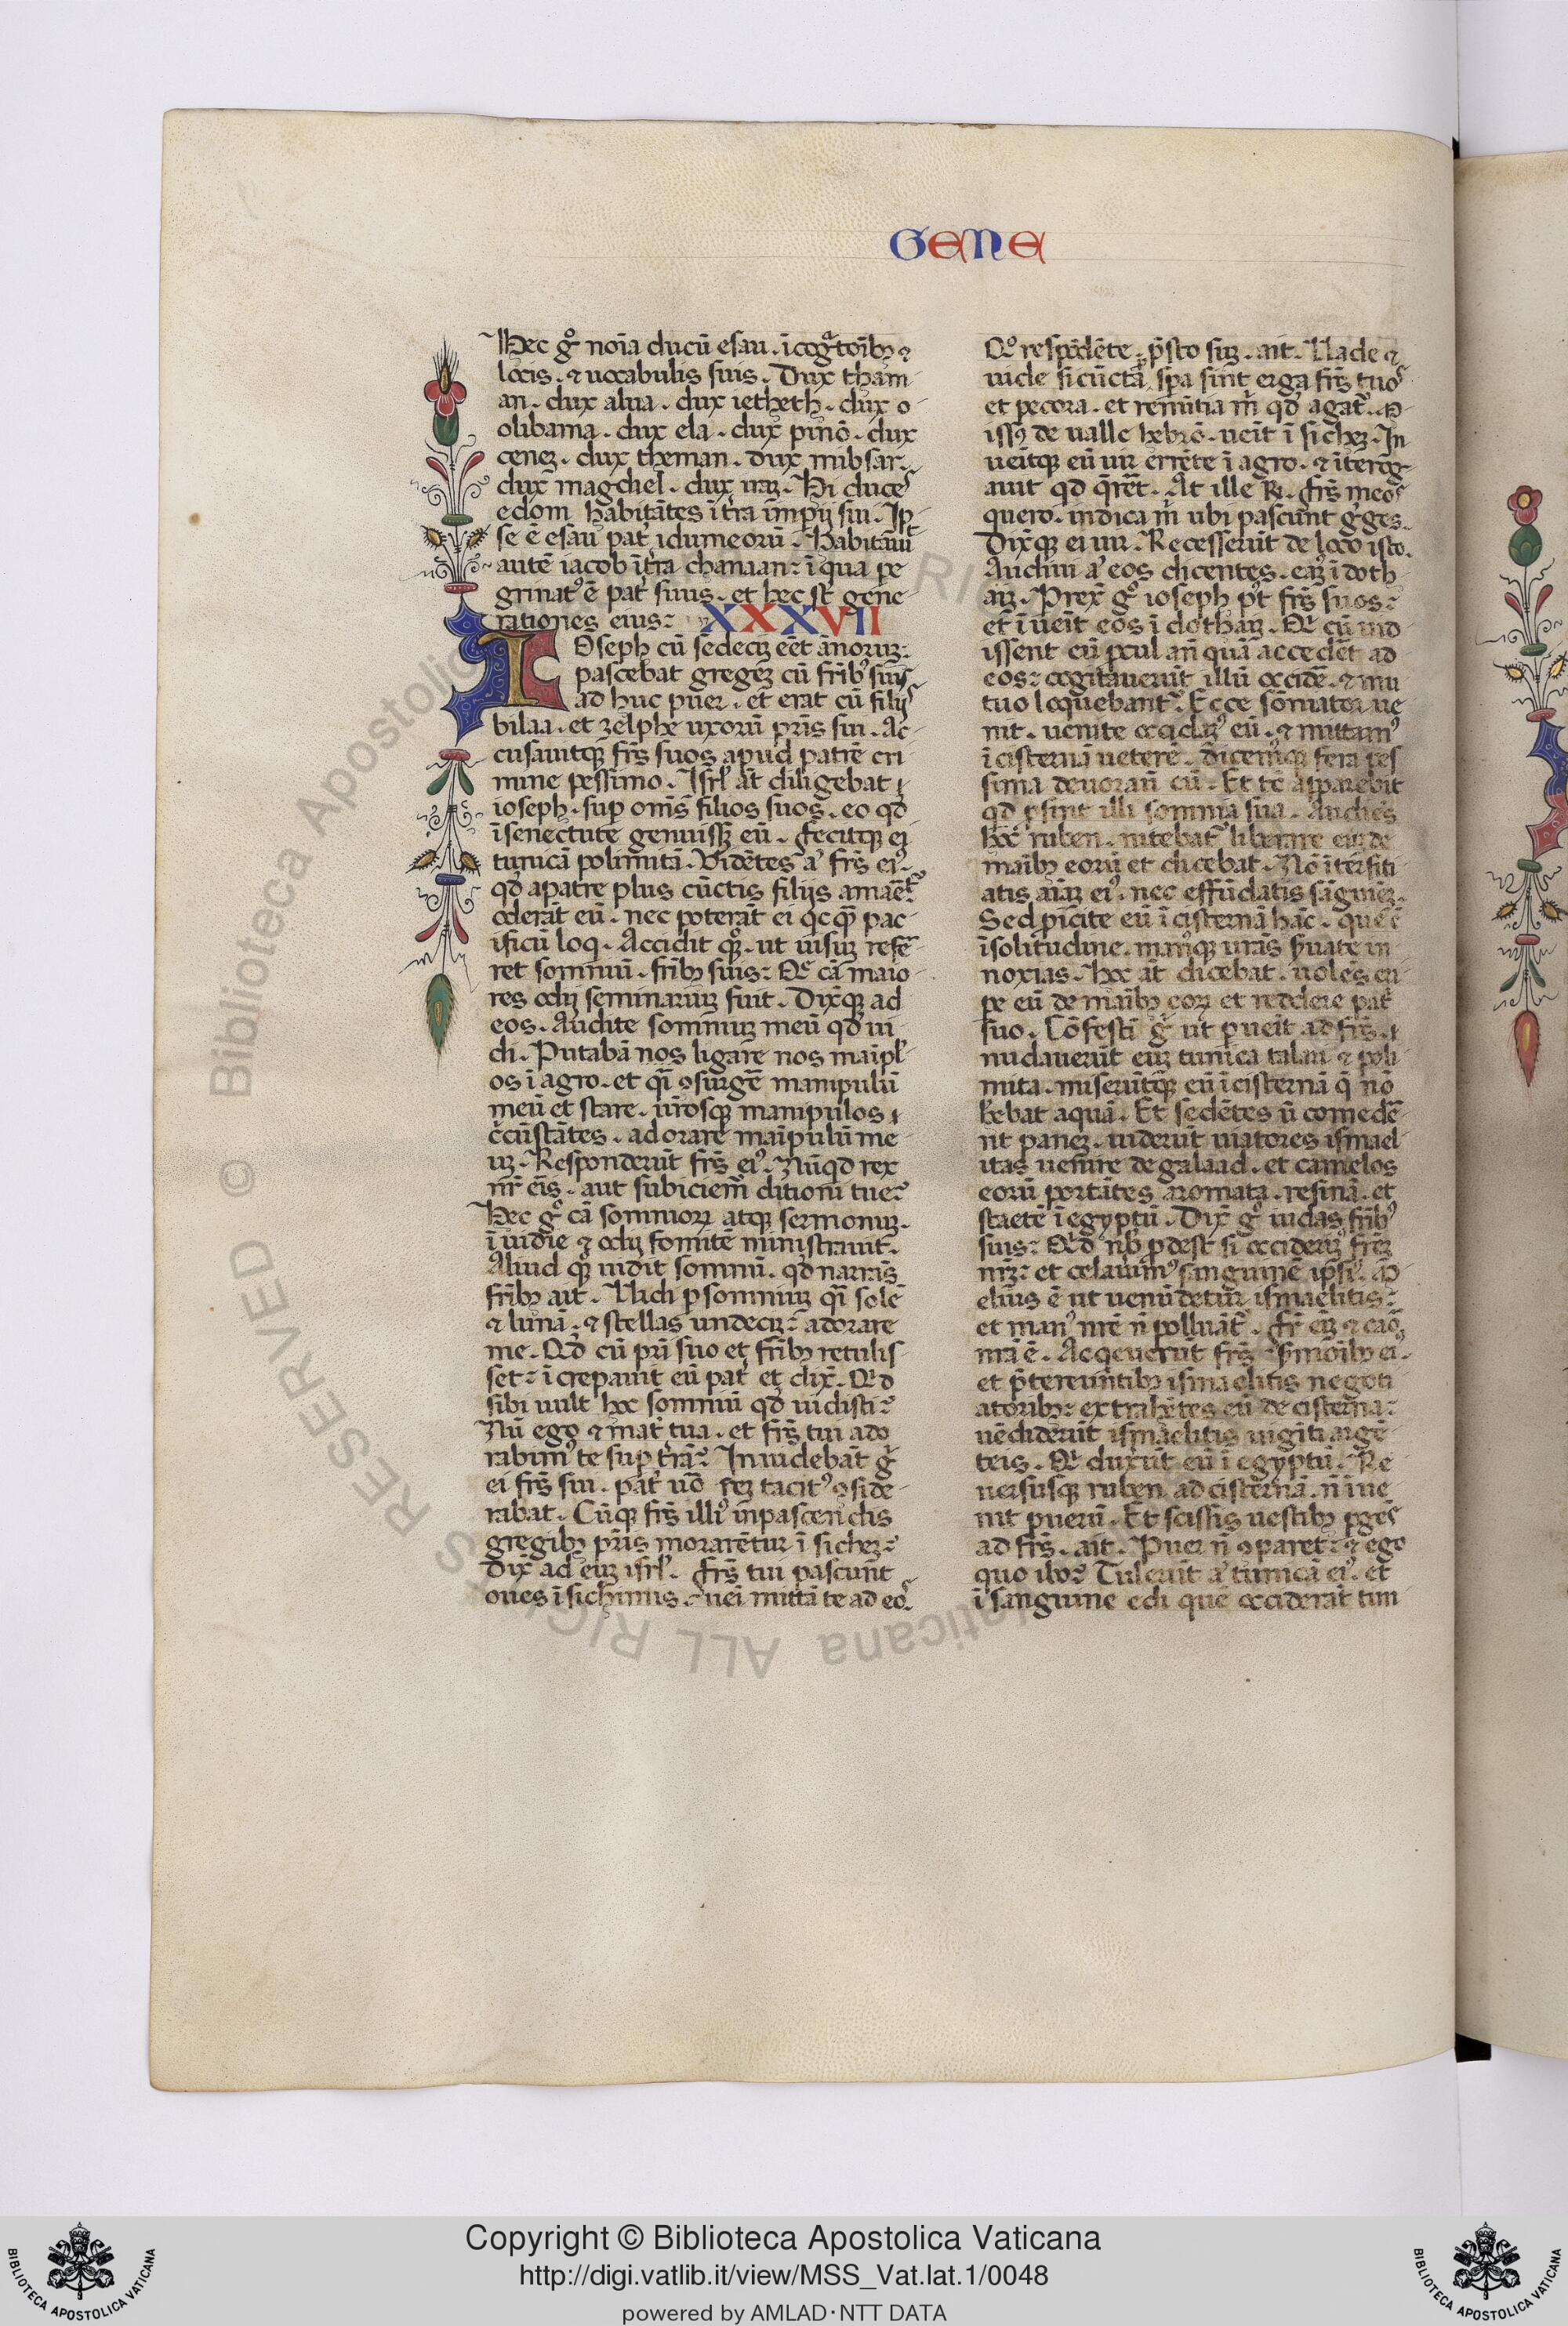 GENE
Hec g̊ noīa ducū esau. ī cog̃tōībꝫ ⁊
locis. ⁊ uocabulis suis. Dux tham
an. dux alua. dux ietheth. dux o
olibama. dux ela. dux pinō. dux
cenez. dux theman. dux mibsar.
dux magdiel. dux iraꝫ. Hi duces
edom habitātes ī t̃ra īmpij sui. Ip
se ē esau pat̃ idumeorū. Habitāuit
autē iacob ī t̃ra chanaan: ī qua pe
grinatꝰ ē pat̃ suus. et hec st̃ gene
rationes eius: XXXVII
IOseph cū sedeciꝫ eēt ānoruꝫ:
pascebat gregeꝫ cū fr̄ibꝰ suis.
ad huc puer. et erat cū filijs
bilaa. et zelphe uxorū pr̄is sui. Ac
cusauitqꝫ fr̄s suos apud patrē cri
mine pessimo. Isrl̓ at̄ diligebat
ioseph. suꝑ om̄s filios suos. eo qđ
īsenectute genuissꝫ eū. fecitqꝫ ei
tunicā polimitā. Vidētes aͨ fr̄s eiꝰ.
qđ apatre plus cūctis filijs amaēt̃
oderāt eū. nec poterāt ei qͥcqͣ pac
ificū loq. Accidit qͦꝫ. ut uisuꝫ refer̄
ret somniū. fr̄ibꝫ suis: Q̄ cā maio
res odij seminariuꝫ fuit. Dix̄qꝫ ad
eos. Audite somniuꝫ meū qđ ui
di. Putabā nos ligare nos maīpl̓
os ī agro. et qͣi ꝯsurgē manipulū
meū et stare. ur̄osqꝫ manipulos
c̃cūstātes. adorare maīpulū me
uꝫ. Responderūt fr̄s eiꝰ. Nūqđ rex
nr̄ ēis. aut subiciem̃ ditioni tue?
Hec g̊ cā somnioꝝ atqꝫ sermonuꝫ.
ī uidie ⁊ odij fomitē ministrauit.
Aliud qͦꝫ uidit somnū. qđ narrās
fr̄ibꝫ ait. Uidi ꝑ somniuꝫ qͣi solē
⁊ lunā. ⁊ stellas undeciꝫ: adorare
me. Qđ cū pr̄i suo et fr̄ibꝫ retulis
set: ī crepauit eū pat̃ et dix̄. Qđ
sibi uult hoc somniū qđ uidisti?
Nū ego ⁊ mat̃ tua. et fr̄s tui ado
rabimꝰ te suꝑ t̃rā? Inuidebāt g̃
ei fr̄s sui. pat̃ uō reꝫ tacitꝰ ꝯside
rabat. Cūqꝫ fr̄s illiꝰ inpascendis
gregibꝫ pr̄is morarētur ī sicheꝫ:
dix̄ ad euꝫ isrl̓. fr̄s tui pascunt
oues ī sichimis. uei mittā te ad eos
Qͦ respōdēte. p̄sto suꝫ. ait. Uade ⁊
uide si cūctā spa sint erga fr̄s tuos
et pecora. et renūtia m̄ qđ agat̃. M
issꝰ de ualle hebrō. ueīt ī sicheꝫ. In
ueītqꝫ eū uir errēte ī agro. ⁊ īterog
auit qđ q̄rēt. At ille R. fr̄s meos
quero. indica m̄ ubi pascunt g̃ges.
Dix̄qꝫ ei uir. Recesserūt de loco isto.
Audiui aͨ eos dicentes. eaꝫꝰ ī doth
aiꝫ. Prex̄ g̊ ioseph p̄t fr̄s suos:
et ī ueīt eos ī dothaiꝫ. Q̄ cū uid
issent eū ꝓcul an̄ quā accedēt ad
eos: cogitauerūt illū occide. ⁊ mu
tuo loquebant̃. Ecce sōmiator ue
nit. uenite occidꝰ eū. ⁊ mittamꝰ
ī cisternā ueterē. dicemꝰqꝫ fera pes
sima deuorauit eū. Et tc̄ apparebit
qđ ꝓsint illi somnia sua. Audiēs
hoc ruben. nitebat̃ liberare euꝫ de
maībꝫ eorū et dicebat. Nō īterfiti
atis aīaꝫ eiꝰ. nec effūdatis sāguīeꝫ.
Sed p̄icite eū ī cisternā hāc. que ē
īsolitudine. manꝰqꝫ ur̄as s̄uate in
noxias. Hoc at̄ dicebat. uolēs eri
pe eū de maībꝫ eoꝝ et reddere pat̃
suo. Cōfestī g̃ ut ꝑueīt ad fr̄s.
nudauerūt euꝫ tunica talari ⁊ poli
mita. miserūtqꝫ eū ī cisternā q̄ nō
hēbat aquā. Et sedētes ū comedē
nt paneꝫ. uiderūt uiatores ismael
itas uenire de galaad. et camelos
eorū portātes aromata. resinā. et
stactē ī egyptū. Dix̄ g̊ iudas fr̄ibꝰ
suis: Qđ nb̄ ꝓdest si occiderīꝰ fr̄eꝫ
nr̄ꝫ: et celauimꝰ sanguinē ipsiꝰ. M
elius ē ut uenūdetur ismaelitis:
et manꝰ nr̄e n̄ polluāt̃. fr̄ eīꝫ ⁊ caro
nr̄a ē. Acqeuerūt fr̄s s̃moībꝫ ei.
et p̄tereuntibꝫ ismaelitis negoti
atoribꝫ: extrahētes eū de cisterna:
uēdiderūt ismaelitis uigīti argē
teis. Q̄ duxūt eū ī egyptū. Re
uersusqꝫ ruben ad cisternā. n̄ īue
nit puerū. Et scissis uestibꝫ ꝑgēs
ad fr̄s. ait. Puer n̄ ꝯparet: ⁊ ego
quo ibo? Tulerūt aͨ tunicā eiꝰ. et
ī sanguine edi quē occiderāt tun
Copyright © Biblioteca Apostolica Vaticana
http://digi.vatlib.it/view/MSS_Vat.lat.1/0048
powered by AMLAD·NTT DATA
BIBLIOTECA APOSTOLICA VATICANA
BIBLIOTECA APOSTOLICA VATICANA